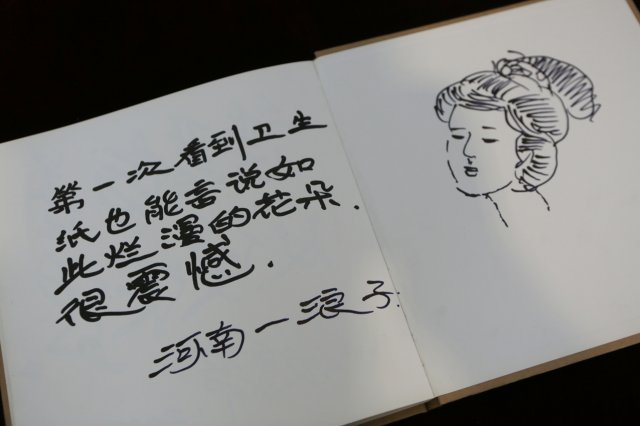 第一次看到卫生
纸也能言说如
此烂漫的花朵.
很震憾.
河南一浪子.